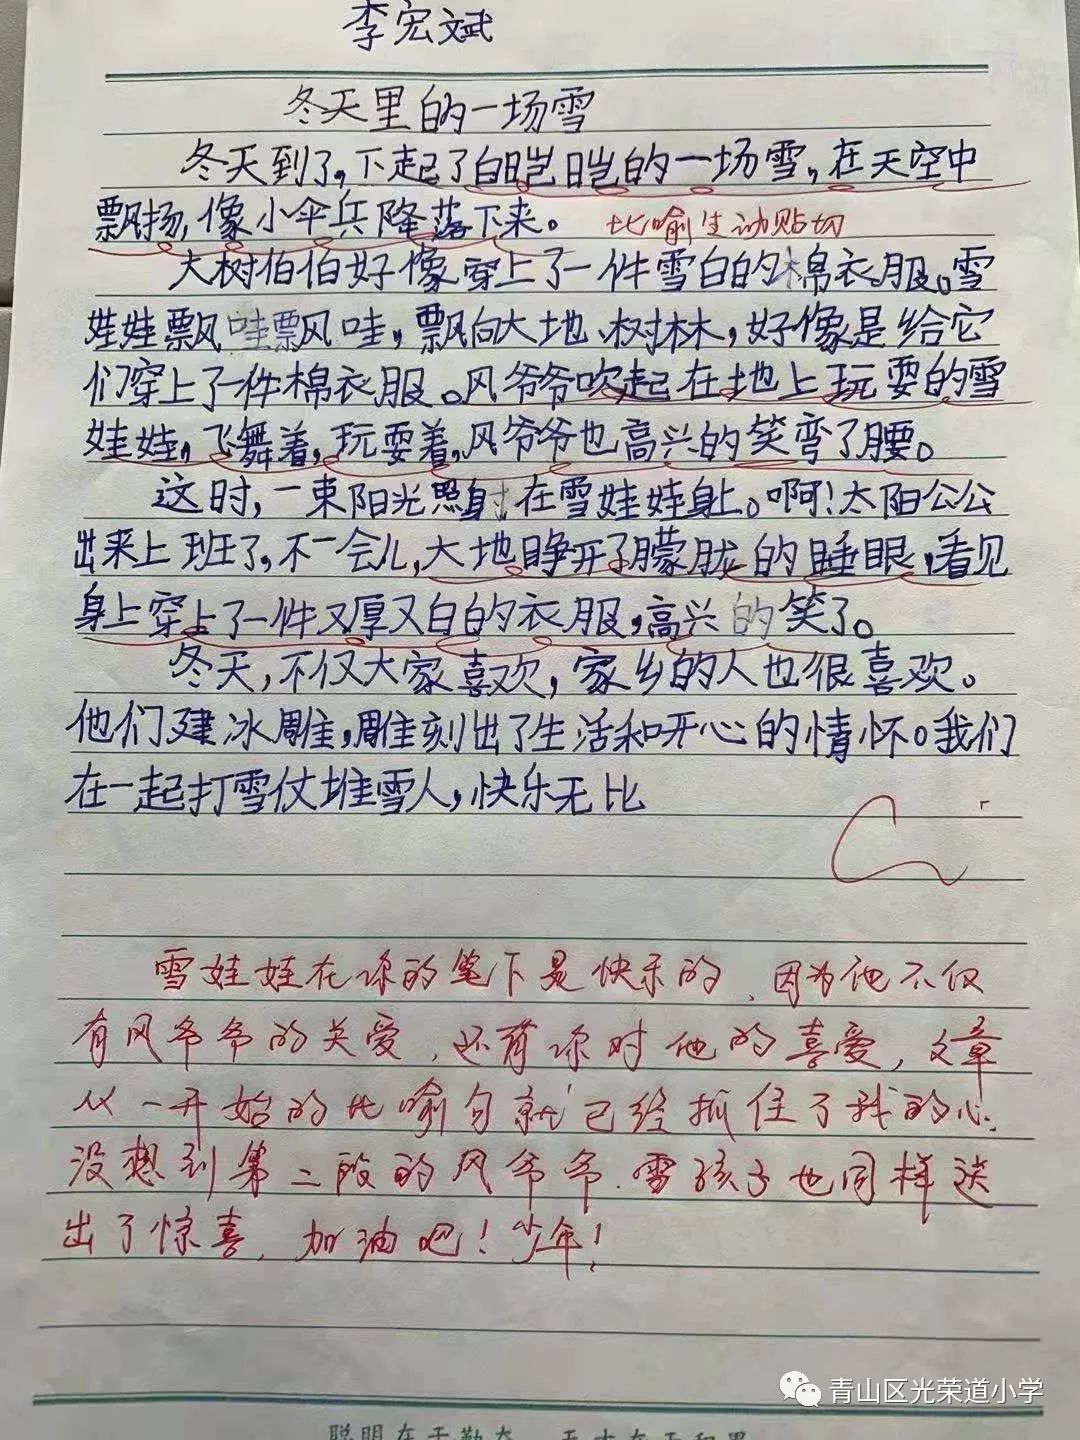 李宏斌
冬天里的一场雪
冬天到了,下起了白皑皑的一场雪,在天空中
飘扬,像小伞兵降落下来。 比喻生动贴切
大树伯伯好像穿上了一件雪白的棉衣服。雪
娃娃飘哇飘哇,飘向大地、树林,好像是给它
们穿上了一件棉衣服。风爷爷吹起在地上玩耍的雪
娃娃,飞舞着,玩耍着,风爷爷也高兴的笑弯了腰。
这时,一束阳光照射在雪娃娃身上。啊!太阳公公
出来上班了,不一会儿,大地睁开了朦胧的睡眼,看见
身上穿上了一件又厚又白的衣服,高兴的笑了。
冬天,不仅大家喜欢,家乡的人也很喜欢。
他们建冰雕,雕刻出了生活和开心的情怀。我们
在一起打雪仗堆雪人,快乐无比
雪娃娃在你的笔下是快乐的,因为他不仅
有风爷爷的关爱,还有你对他的喜爱,文章
从一开始的比喻句就已经抓住了我的心,
没想到第二段的风爷爷、雪孩子也同样送
出了惊喜,加油吧!少年!
青山区光荣道小学